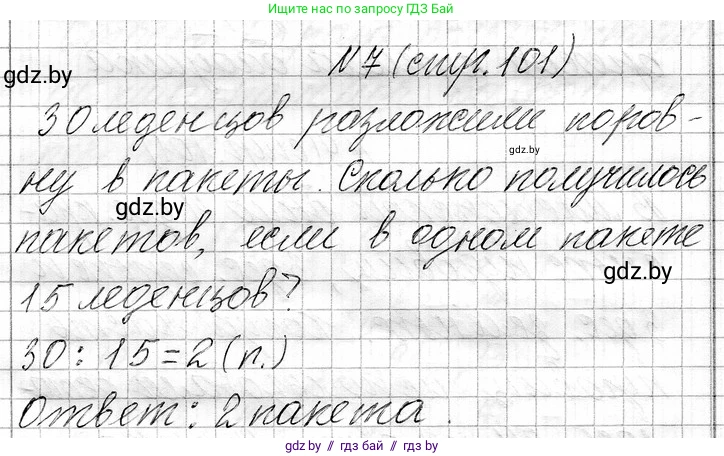 Ищите нас по запросу ГДЗ Бай
N 7 (стр. 101)
gdz.by
30 леденцов разложили поров-
gdz.by
ну в пакеты. Сколько получилось
gdz.by
пакетов, если в одном пакете
gdz.by
15 леденцов?
30 : 15 = 2 (п.)
Ответ: 2 пакета.
gdz.by // гдз бай // гдз by